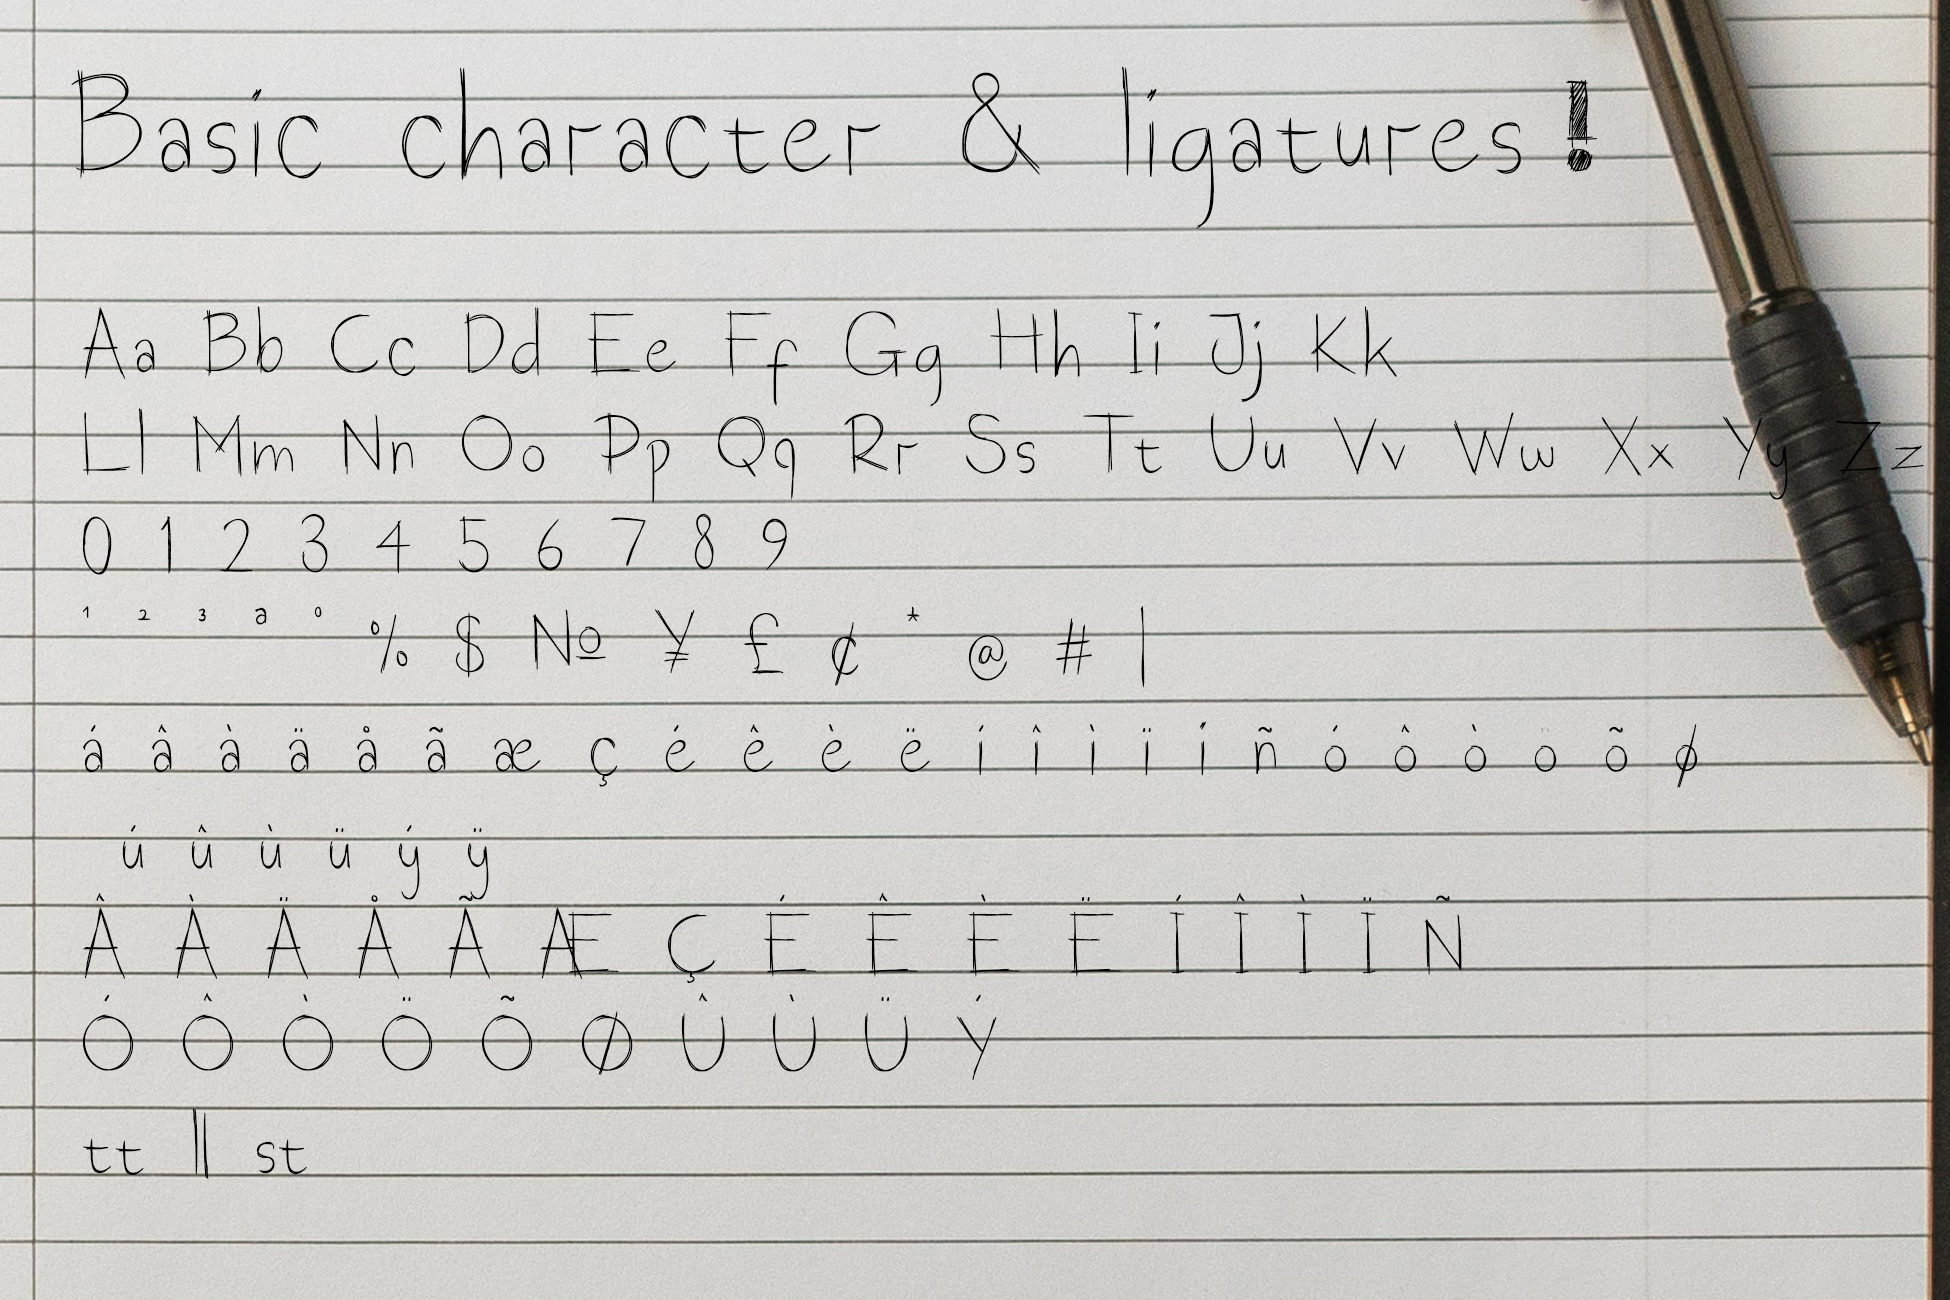 Basic character & ligatures!
Aa Bb Cc Dd Ee Ff Gg Hh Ii Jj Kk
Ll Mm Nn Oo Pp Qq Rr Ss Tt Uu Vv Ww Xx Yy Zz
0 1 2 3 4 5 6 7 8 9
¹ ² ³ ª º % $ № ¥ £ ¢ * @ # |
á â à ä å ã æ ç é ê è ë í î ì ï í ñ ó ô ò ö õ ø
ú û ù ü ý ÿ
Â À Ä Å Ã Æ Ç É Ê È Ë Í Î Ì Ï Ñ
Ó Ô Ò Ö Õ Ø Û Ù Ü Ý
tt ll st